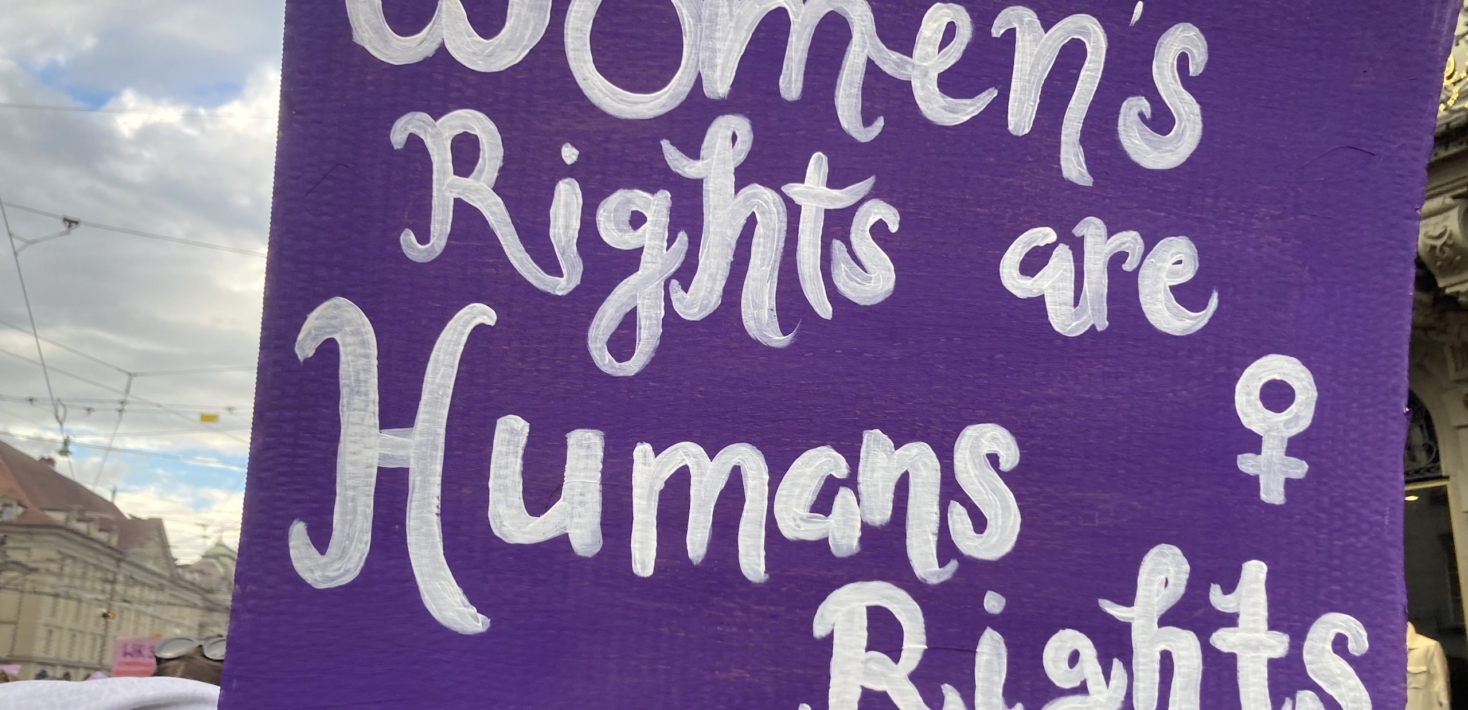 Women's
Rights are
Humans
♀
Rights